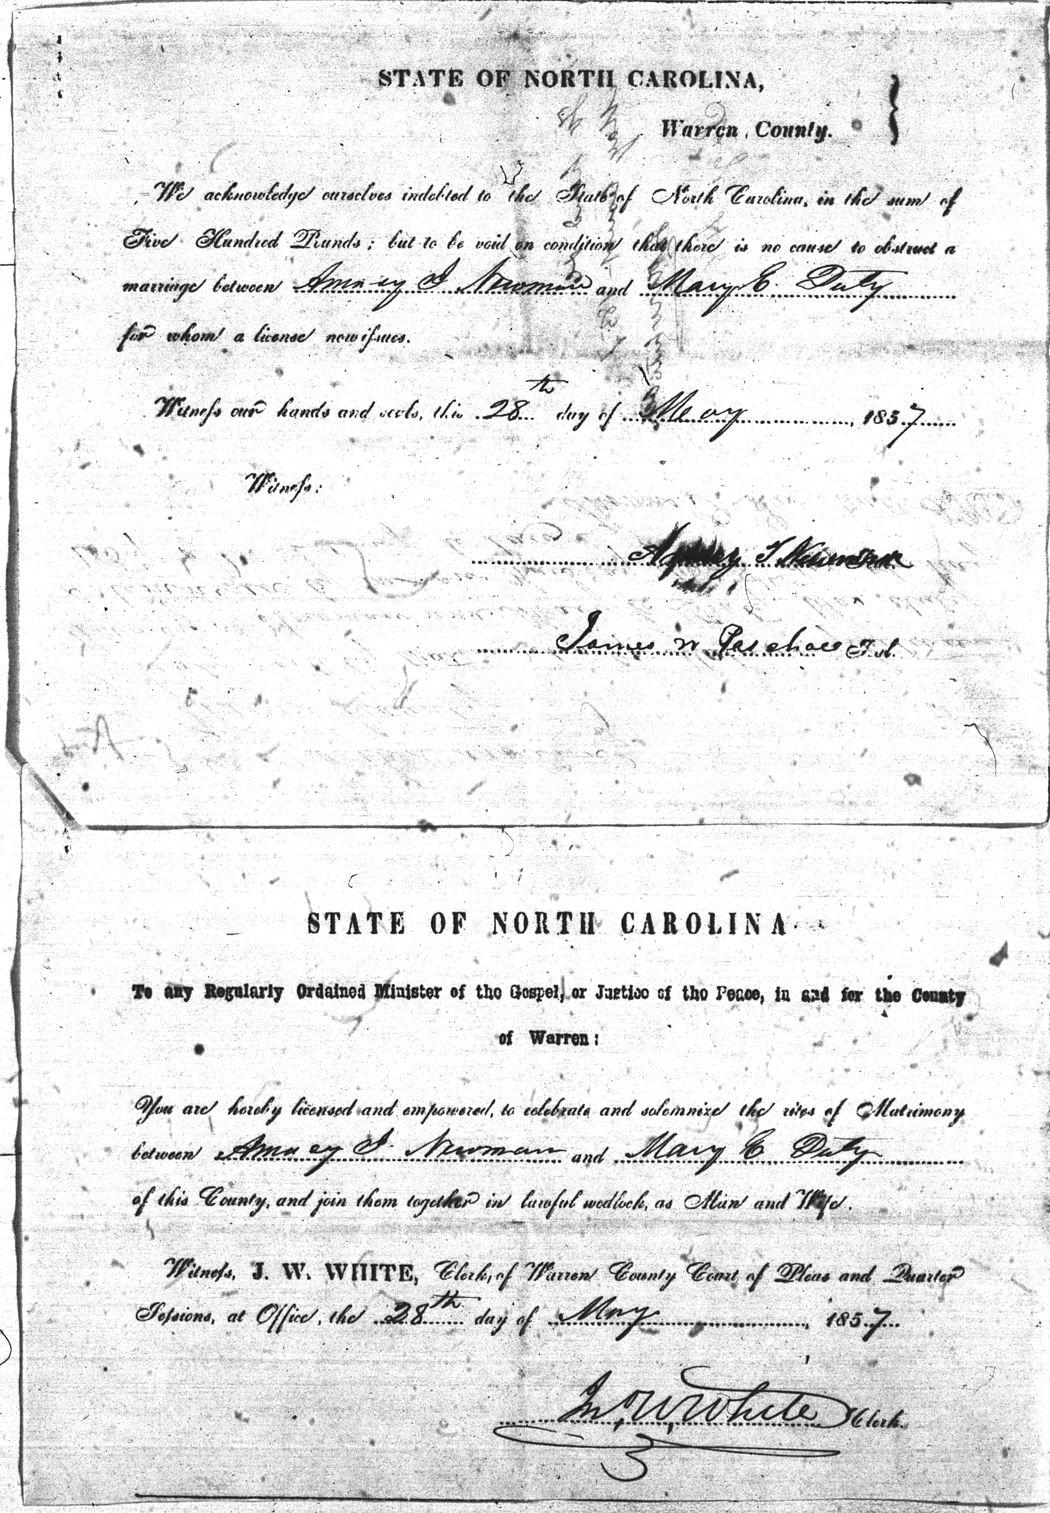 STATE OF NORTH CAROLINA,
Warren County.
We acknowledge ourselves indebted to the State of North Carolina, in the sum of
Five Hundred Pounds; but to be void on condition that there is no cause to obstruct a
marriage between Amney I Newman and Mary E. Duty
for whom a license now issues.
Witness our hands and seals, this 28th day of May 1857
Witness:
I Newman
James W Paschall
STATE OF NORTH CAROLINA
To any Regularly Ordained Minister of the Gospel, or Justice of the Peace, in and for the County
of Warren:
You are hereby licensed and empowered, to celebrate and solemnize the rites of Matrimony
between Amney I. Newman and Mary E Duty
of this County, and join them together in lawful wedlock, as Man and Wife.
Witness, J. W. WHITE, Clerk, of Warren County Court of Pleas and Quarter
Sessions, at Office, the 28th day of May, 1857
Jno W. White Clerk.